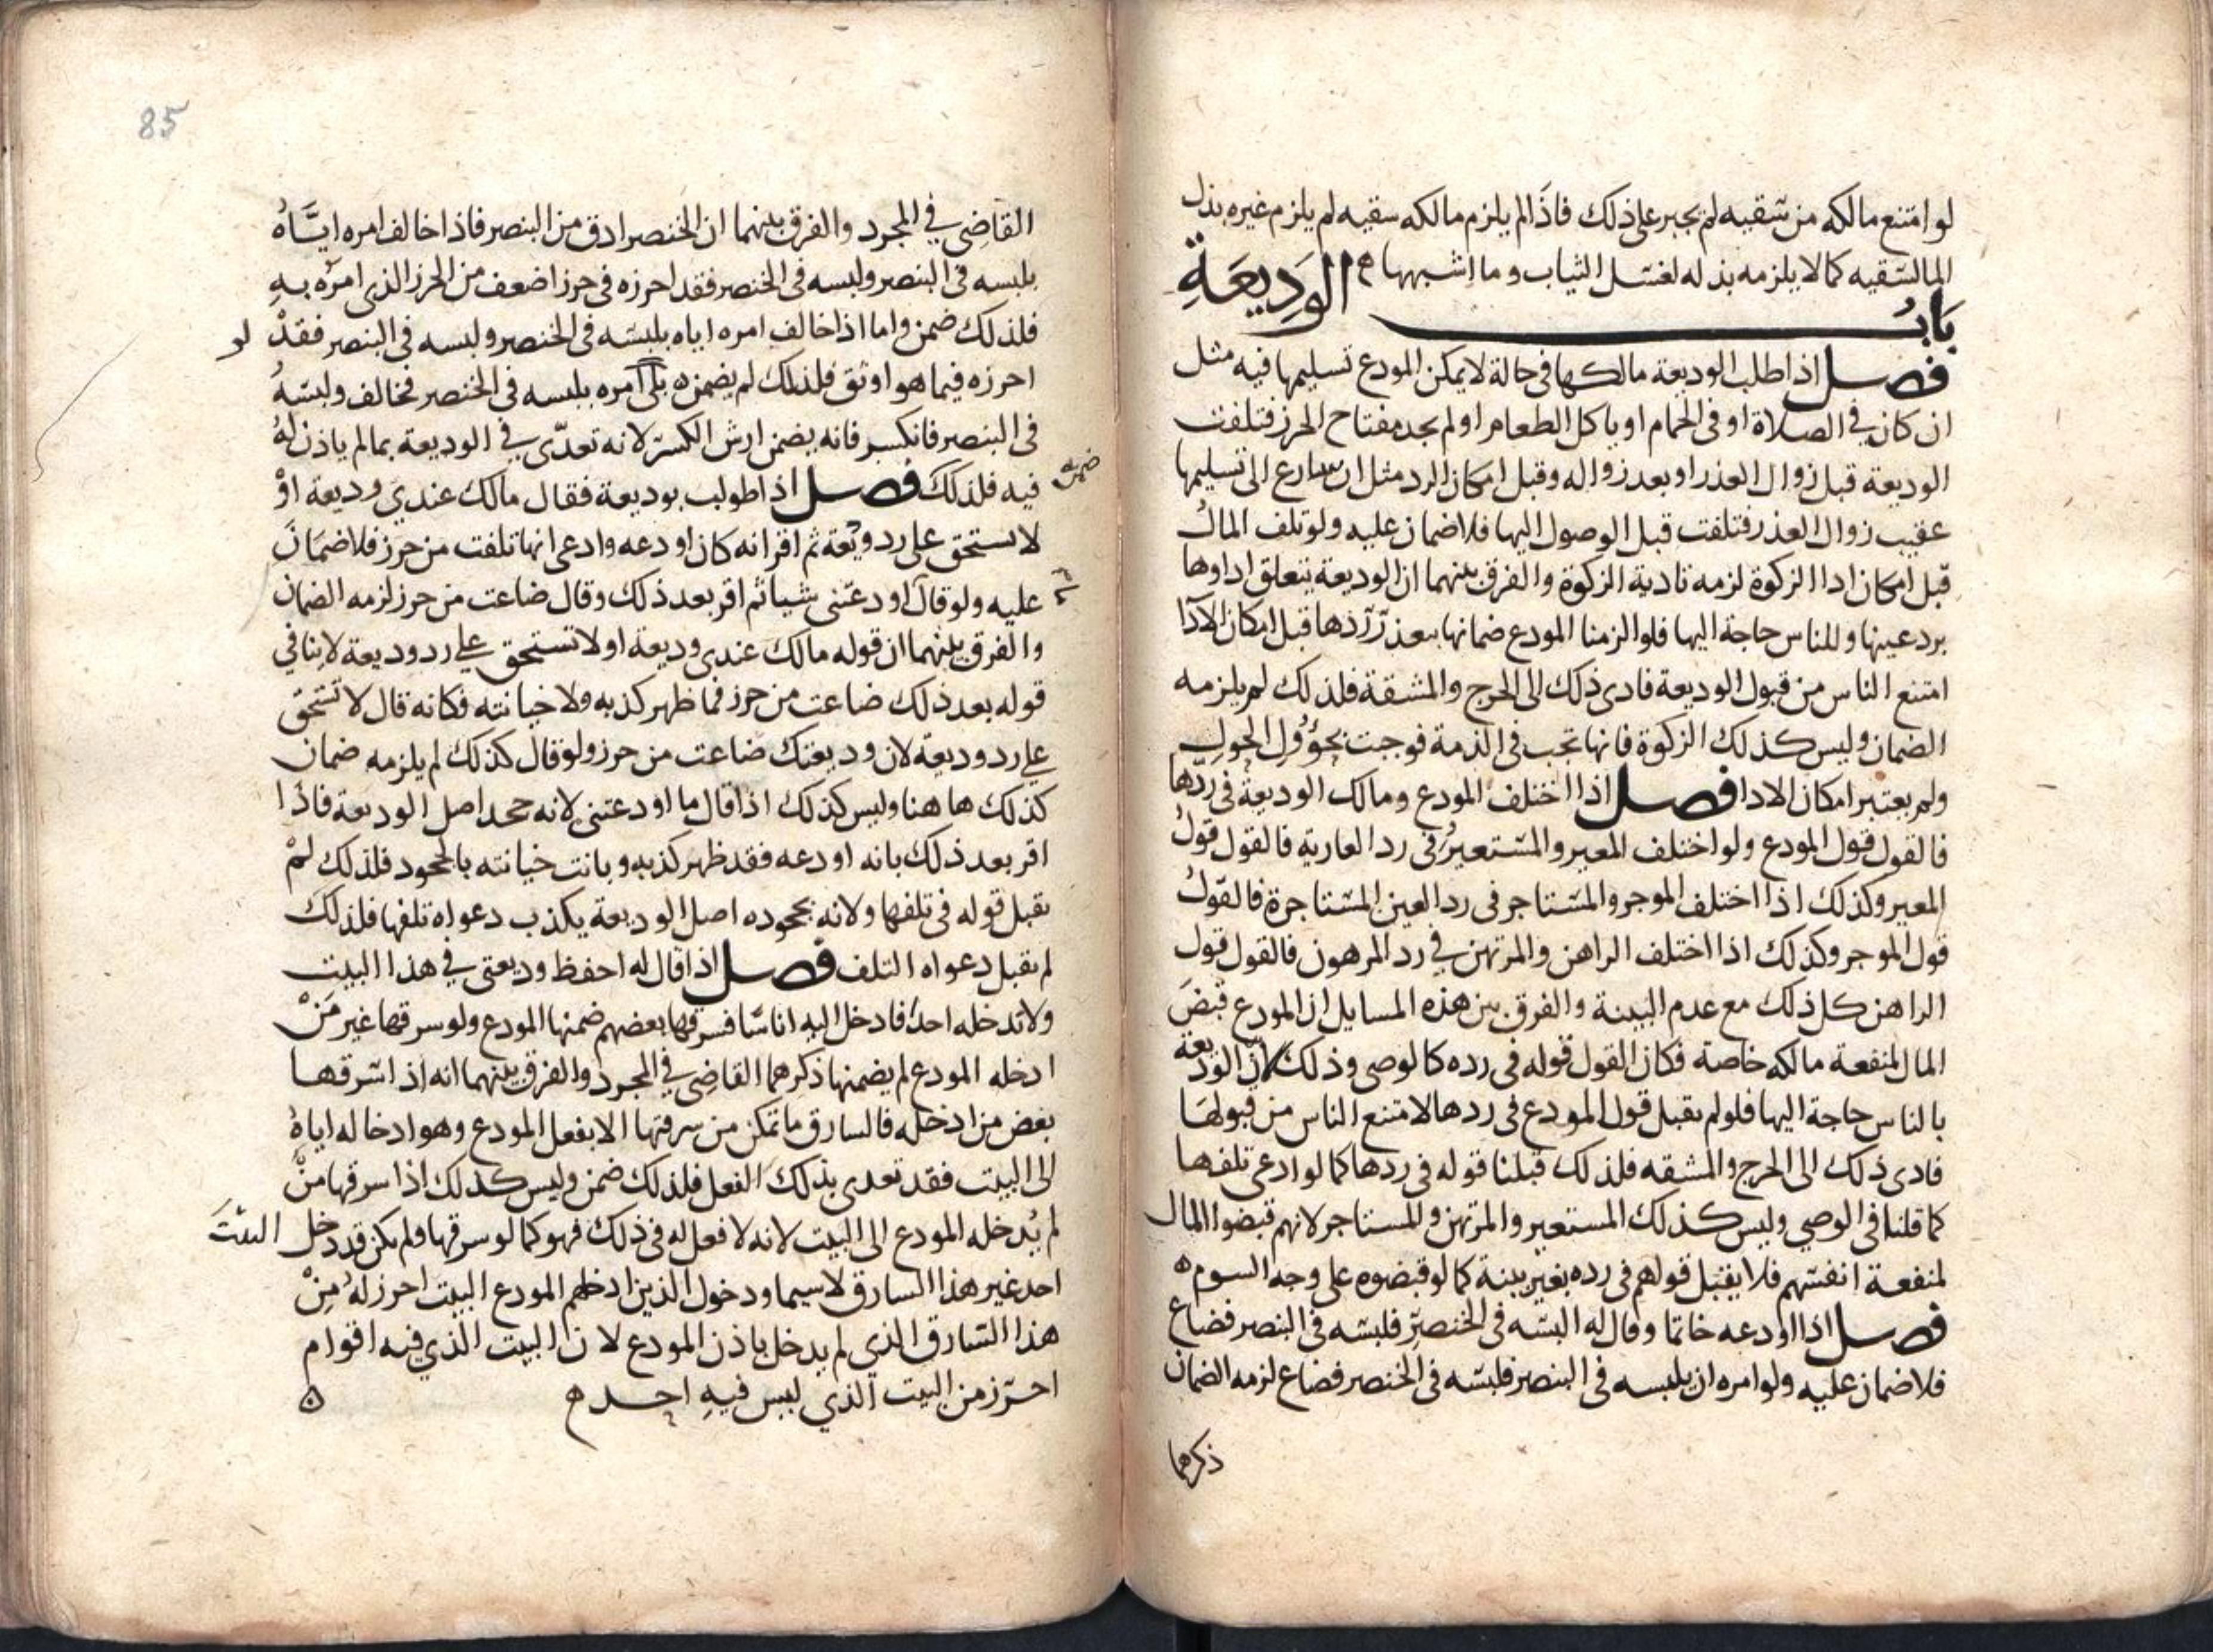 لو امتنع مالكه من سقيه لم يجبر على ذلك فاذا لم يلزم مالكه سقيه لم يلزم غيره بذل
المالسقيه كما لا يلزمه بذله لغسل الثياب وما اشبهها ه
باب الوديعة
فصل اذا طلب الوديعة مالكها في حالة لا يمكن المودع تسليمها فيه مثل
ان كان في الصلاة او في الحمام او ياكل الطعام او لم يجد مفتاح الحرز فتلفت
الوديعة قبل زوال العذر او بعد زواله وقبل امكان الرد مثل ان سارع الى تسليمها
عقيب زوال العذر فتلفت قبل الوصول اليها فلا ضمان عليه ولو تلف المال
قبل امكان ادا الزكوة لزمه تادية الزكوة والفرق بينهما ان الوديعة يتعلق اداوها
برد عينها وللناس حاجة اليها فلو الزمنا المودع ضمانها بعذر ردها قبل امكان الادا
امتنع الناس من قبول الوديعة فادى ذلك الى الحرج والمشقة فلذلك لم يلزمه
الضمان وليس كذلك الزكوة فانها تجب في الذمة فوجبت بحؤول الحول
ولم يعتبر امكان الادا فصل اذا اختلف المودع ومالك الوديعة في ردها
فالقول قول المودع ولو اختلف المعير والمستعير في رد العارية فالقول قول
المعير وكذلك اذا اختلف الموجر والمستاجر في رد العين المستاجرة فالقول
قول الموجر وكذلك اذا اختلف الراهن والمرتهن في رد المرهون فالقول قول
الراهن كل ذلك مع عدم البينة والفرق بين هذه المسايل ان المودع قبض
المال لمنفعة مالكه خاصة فكان القول قوله في رده كالوصي وذلك لان الوديعة
بالناس حاجة اليها فلو لم يقبل قول المودع في ردها لامتنع الناس من قبولها
فادى ذلك الى الحرج والمشقه فلذلك قبلنا قوله في ردها كما لو ادعى تلفها
كما قلنا في الوصي وليس كذلك المستعير والمرتهن والمستاجر لانهم قبضوا المال
لمنفعة انفسهم فلا يقبل قولهم في رده بغير بينة كما لو قبضوه على وجه السوم ه
فصل اذا اودعه خاتما وقال له البسه في الخنصر فلبسه في البنصر فضاع
فلا ضمان عليه ولو امره ان يلبسه في البنصر فلبسه في الخنصر فضاع لزمه الضمان
ذكرهما
85
القاضي في المجرد والفرق بينهما ان الخنصر ادق من البنصر فاذا خالف امره اياه
بلبسه في البنصر ولبسه في الخنصر فقد احرزه في حرز اضعف من الحرز الذي امره به
فلذلك ضمن واما اذا خالف امره اياه بلبسه في الخنصر ولبسه في البنصر فقد
لو
احرزه فيما هو اوثق فلذلك لم يضمنه بلى امره بلبسه في الخنصر فخالف ولبسه
في البنصر فانكسر فانه يضمن ارش الكسر لانه تعدى في الوديعة بما لم ياذن له
ضمنه
فيه فلذلك فصل اذا طولب بوديعة فقال مالك عندي وديعة او
لا تستحق علي رد وديعة ثم اقر انه كان اودعه وادعى انها تلفت من حرز فلا ضمان
عليه ولو قال ما اودعتني شيا ثم اقر بعد ذلك وقال ضاعت من حرز لزمه الضمان
والفرق بينهما ان قوله مالك عندي وديعة او لا تستحق علي رد وديعة لا ينافي
قوله بعد ذلك ضاعت من حرز فما ظهر كذبه ولا خيانته فكانه قال لا تستحق
علي رد وديعة لان وديعتك ضاعت من حرز ولو قال كذلك لم يلزمه ضمان
كذلك هاهنا وليس كذلك اذا قال ما اودعتني لانه جحد اصل الوديعة فاذا
اقر بعد ذلك بانه اودعه فقد ظهر كذبه وبانت خيانته بالجحود فلذلك لم
يقبل قوله في تلفها ولانه بجحوده اصل الوديعة يكذب دعواه تلفها فلذلك
لم يقبل دعواه التلف فصل اذا قال له احفظ وديعتي في هذا البيت
ولا تدخله احدا فادخل اليه اناسا فسرقها بعضهم ضمنها المودع ولو سرقها غير من
ادخله المودع لم يضمنها ذكرهما القاضي في المجرد والفرق بينهما انه اذا سرقها
بعض من ادخله فالسارق ما تمكن من سرقتها الا بفعل المودع وهو ادخاله اياه
الى البيت فقد تعدى بذلك الفعل فلذلك ضمن وليس كذلك اذا سرقها من
لم يدخله المودع الى البيت لانه لا فعل له في ذلك فهو كما لو سرقها ولم يكن قد دخل البيت
احد غير هذا السارق لا سيما ودخول الذين ادخلهم المودع البيت احرز له من
هذا السارق الذي لم يدخل باذن المودع لان البيت الذي فيه اقوام
احرز من البيت الذي ليس فيه احد ه ه